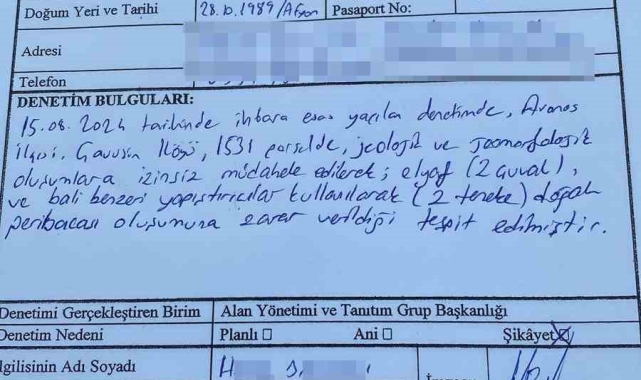 Doğum Yeri ve Tarihi 28.10.1989/Afyon Pasaport No:
Adresi
Telefon
DENETİM BULGULARI:
15.08.2024 tarihinde ihbara esas yapılan denetimde, Avanos
İlçesi. Çavuşin Köyü, 1531 parselde, jeolojik ve jeomorfolojik
oluşumlara izinsiz müdahele edilerek; elyaf (2 çuval),
ve bali benzeri yapıştırıcılar kullanılarak (2 teneke) doğal
peribacası oluşumuna zarar verildiği tespit edilmiştir.
Denetimi Gerçekleştiren Birim Alan Yönetimi ve Tanıtım Grup Başkanlığı
Denetim Nedeni Planlı ☐ Ani ☐ Şikâyet ☒
lgilisinin Adı Soyadı